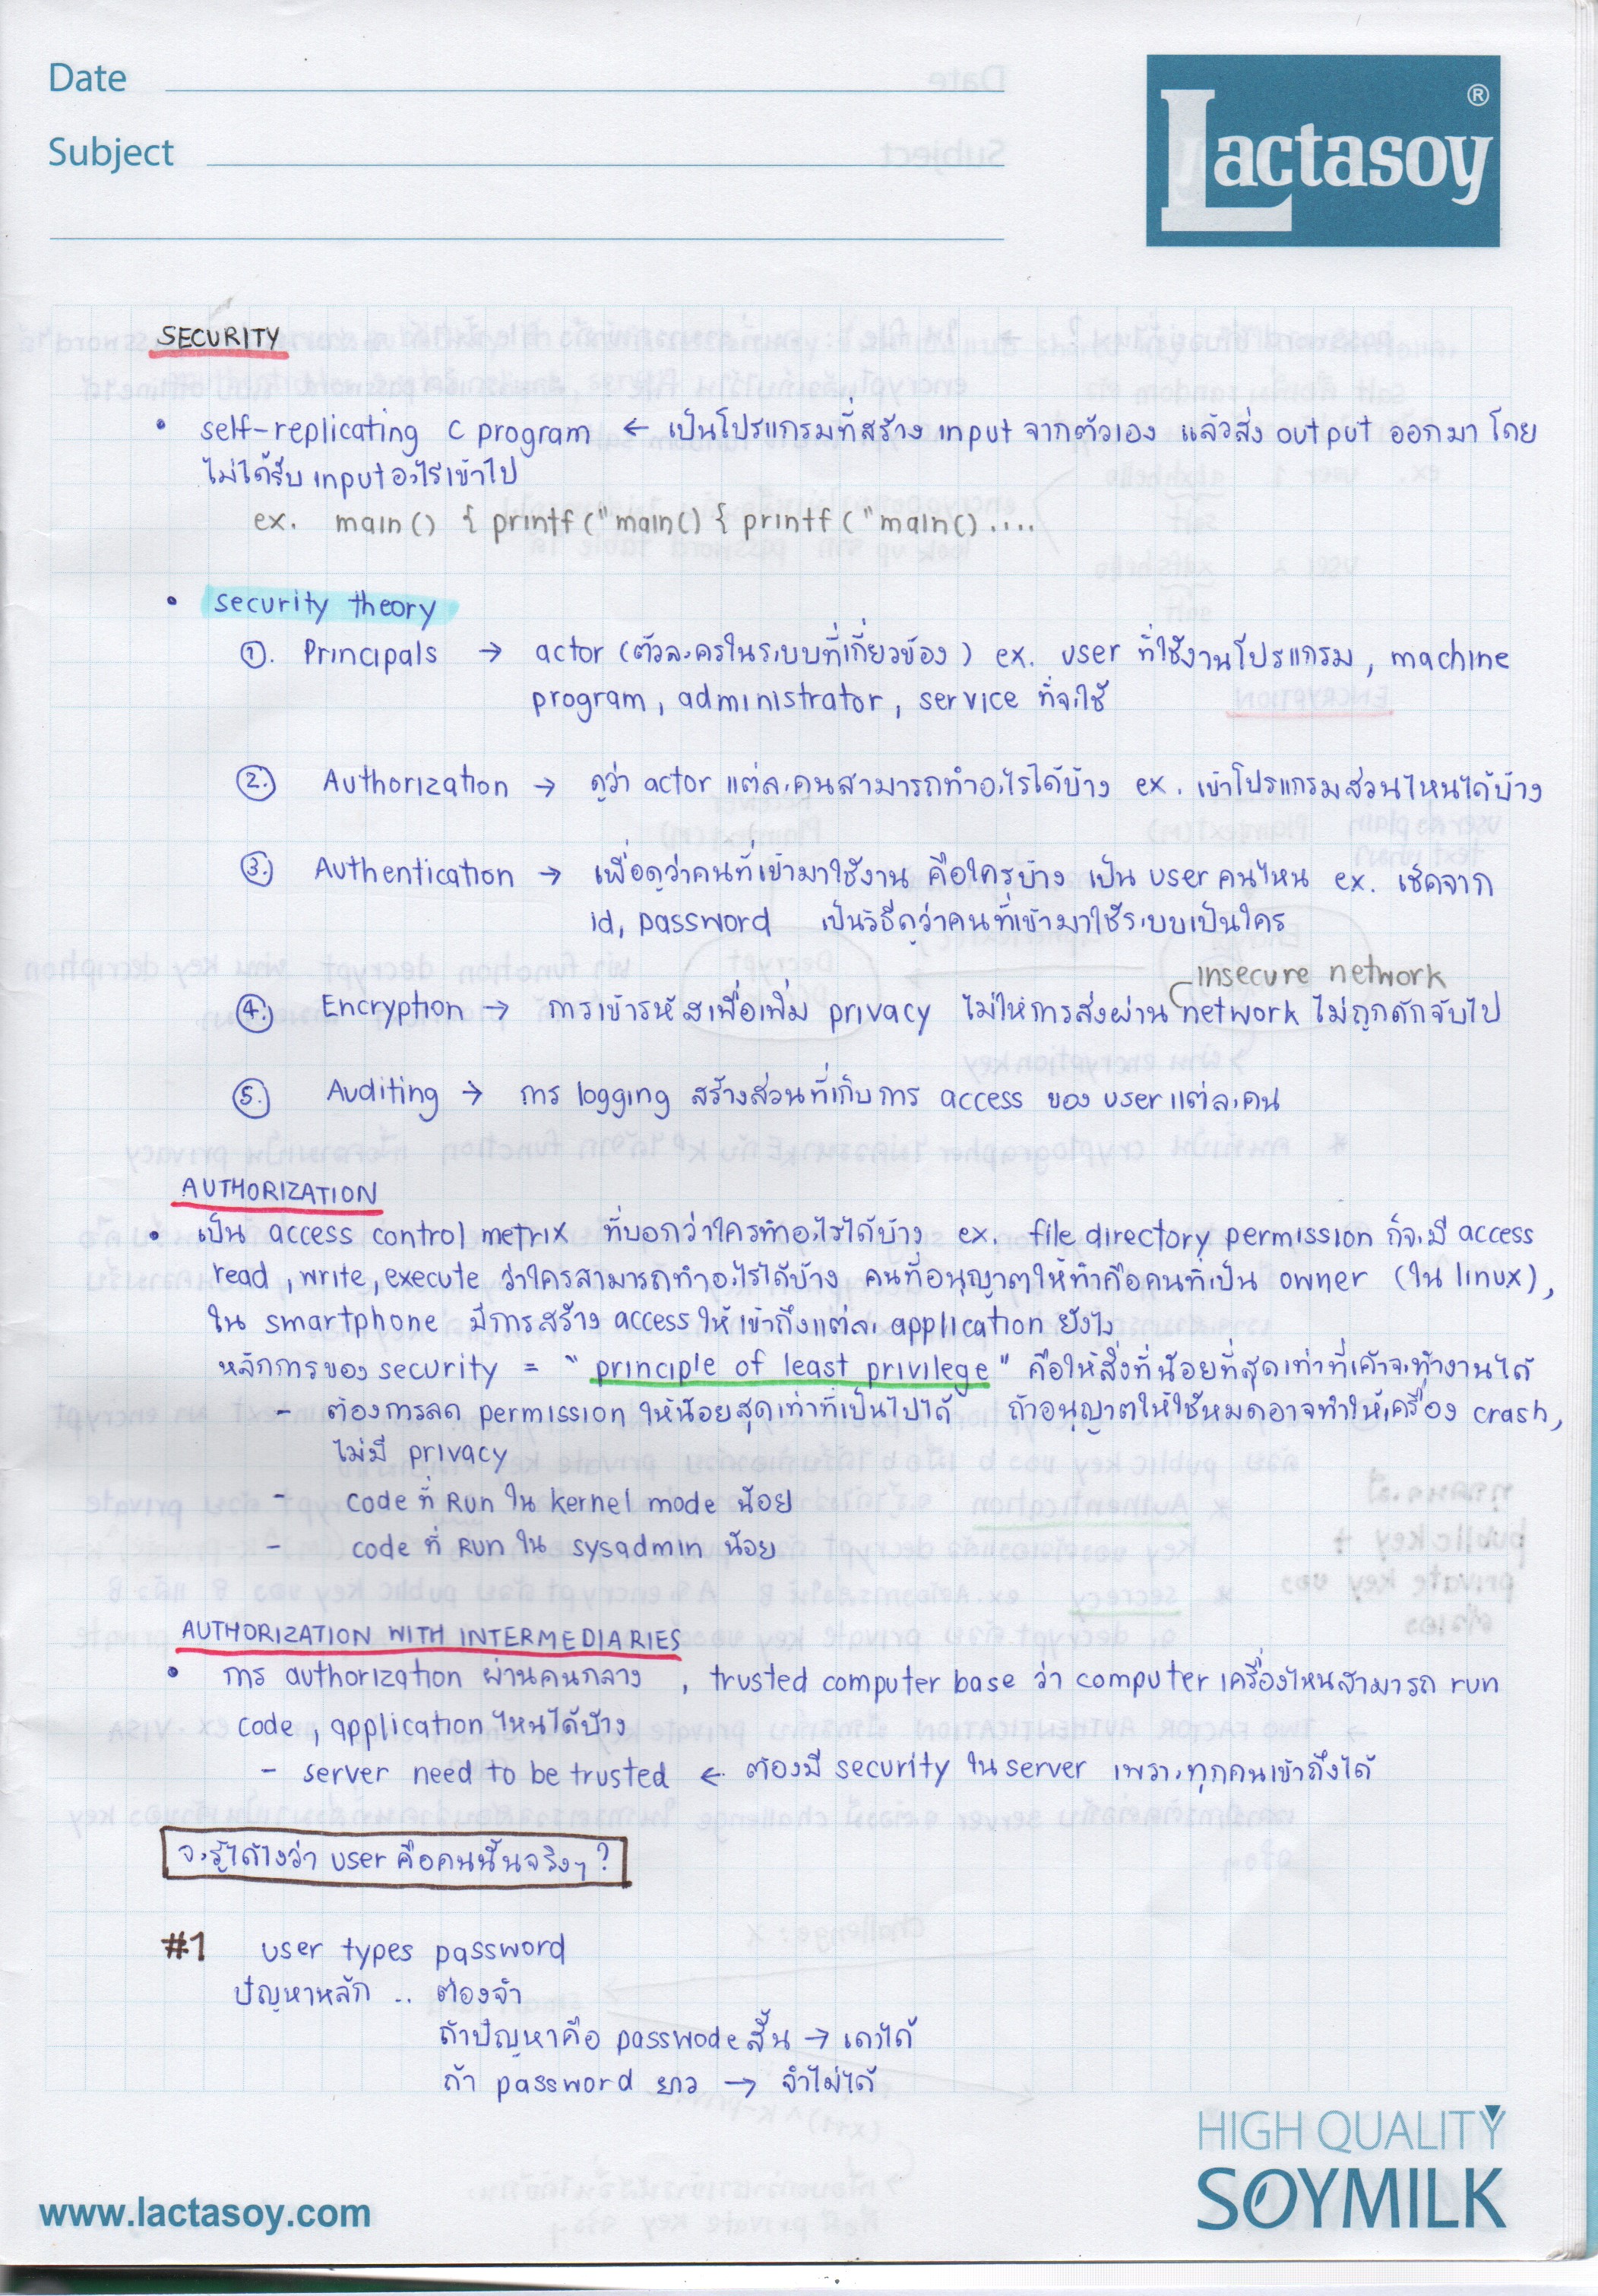 Date
Subject
Lactasoy®
SECURITY
• self-replicating C program ← เป็นโปรแกรมที่สร้าง input จากตัวเอง แล้วส่ง output ออกมา โดย
ไม่ได้รับ input อะไรเข้าไป
ex. main() { printf("main() { printf ("main() ....
• security theory
①. Principals → actor (ตัวละครในระบบที่เกี่ยวข้อง) ex. user ที่ใช้งานโปรแกรม, machine
program, administrator, service ที่จะใช้
②. Authorization → ดูว่า actor แต่ละคนสามารถทำอะไรได้บ้าง ex. เข้าโปรแกรมส่วนไหนได้บ้าง
③. Authentication → เพื่อดูว่าคนที่เข้ามาใช้งาน คือใครบ้าง เป็น user คนไหน ex. เช็คจาก
id, password เป็นวิธีดูว่าคนที่เข้ามาใช้ระบบเป็นใคร
insecure network
④. Encryption → การเข้ารหัสเพื่อเพิ่ม privacy ไม่ให้การส่งผ่าน network ไม่ถูกดักจับไป
⑤. Auditing → การ logging สร้างส่วนที่เก็บการ access ของ user แต่ละคน
AUTHORIZATION
• เป็น access control metrix ที่บอกว่าใครทำอะไรได้บ้าง ex. file directory permission ก็จะมี access
read, write, execute ว่าใครสามารถทำอะไรได้บ้าง คนที่อนุญาตให้ทำคือคนที่เป็น owner (ใน linux),
ใน smartphone มีการสร้าง access ให้เข้าถึงแต่ละ application ยังไง
หลักการของ security = "principle of least privilege" คือให้สิ่งที่น้อยที่สุดเท่าที่เค้าจะทำงานได้
- ต้องการลด permission ให้น้อยสุดเท่าที่เป็นไปได้ ถ้าอนุญาตให้ใช้หมดอาจทำให้เครื่อง crash,
ไม่มี privacy
- code ที่ Run ใน kernel mode น้อย
- code ที่ Run ใน sysadmin น้อย
AUTHORIZATION WITH INTERMEDIARIES
• การ authorization ผ่านคนกลาง, trusted computer base ว่า computer เครื่องไหนสามารถ run
code, application ไหนได้บ้าง
- server need to be trusted ← ต้องมี security ใน server เพราะทุกคนเข้าถึงได้
จะรู้ได้ไงว่า user คือคนนั้นจริงๆ ?
#1 user types password
ปัญหาหลัก .. ต้องจำ
ถ้าปัญหาคือ passwode สั้น → เดาได้
ถ้า password ยาว → จำไม่ได้
HIGH QUALITY
SOYMILK
www.lactasoy.com